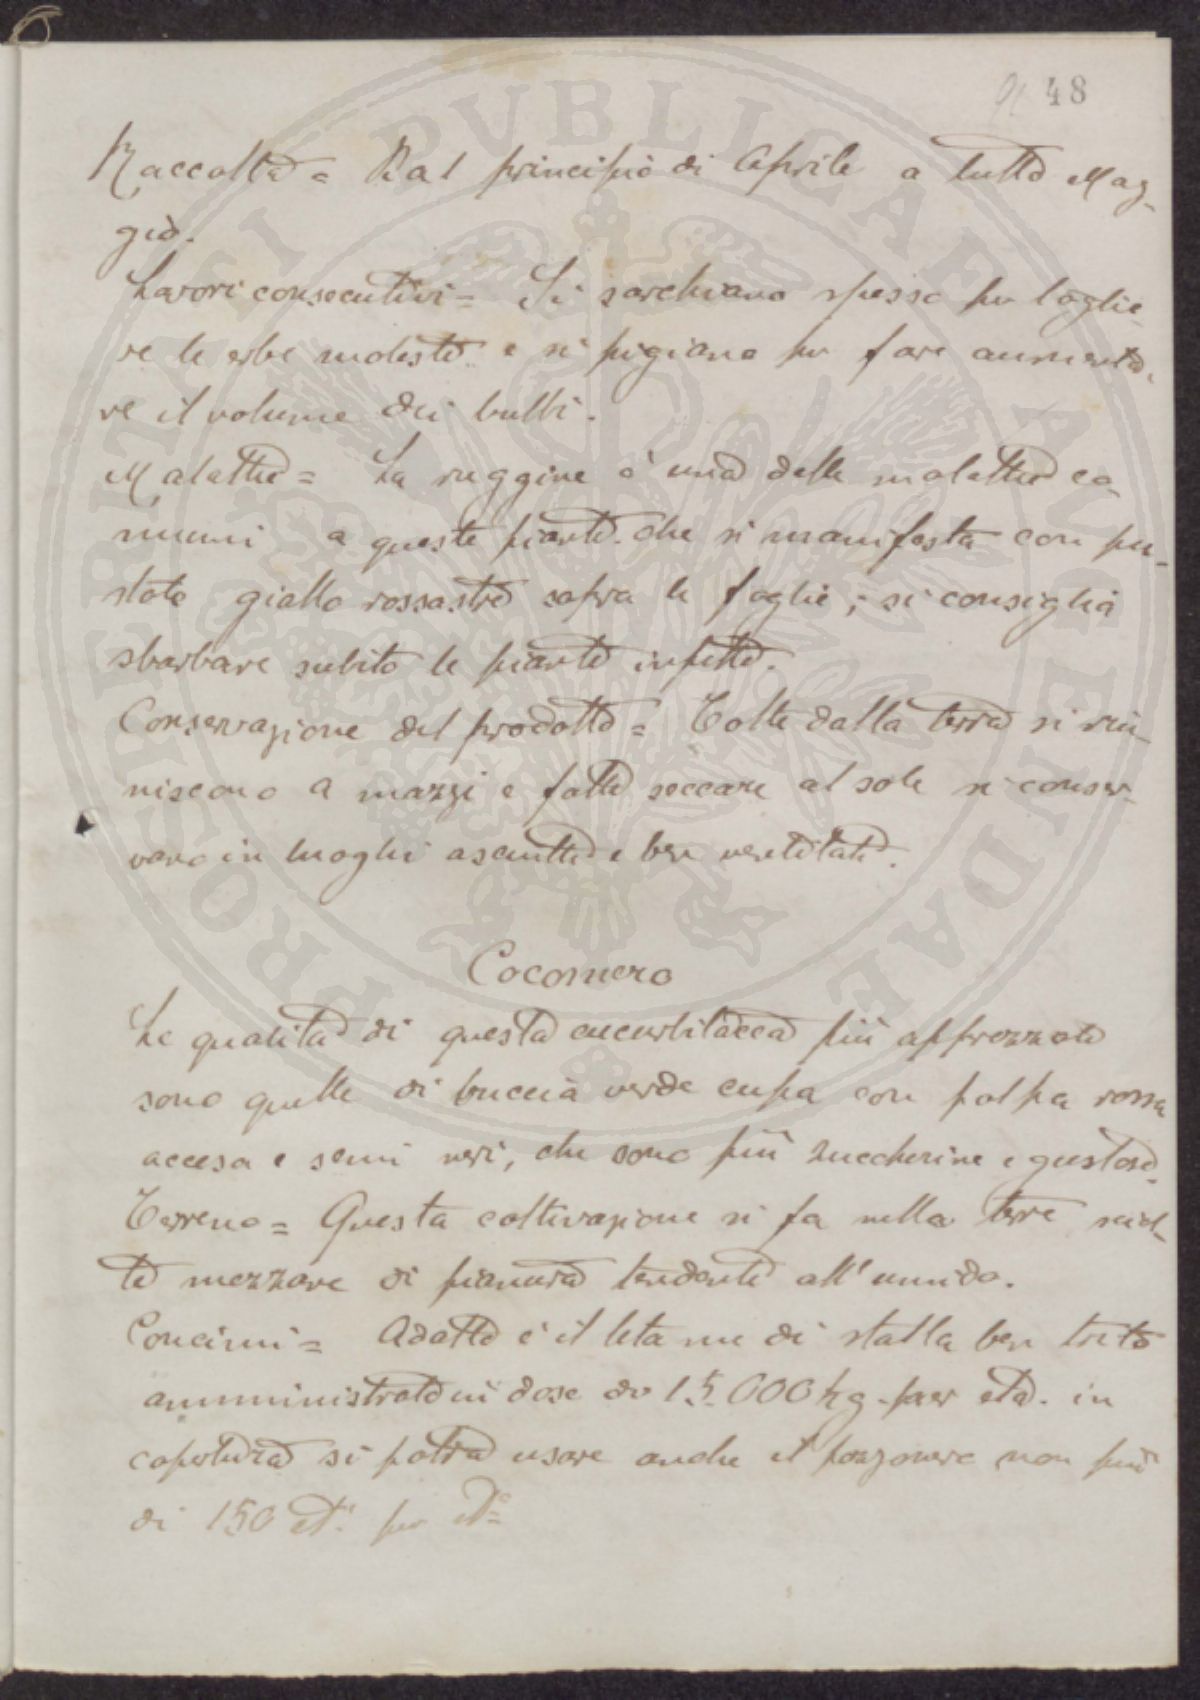 48
Raccolta = Dal principio di Aprile a tutto Mag-
gio.
Lavori consecutivi = Si sarchiano spesso per toglie-
re le erbe moleste e si pigiano per fare aumenta-
re il volume dei bulbi.
Malattie = La ruggine è una delle malattie co-
muni a queste piante che si manifesta con pu-
stole giallo rossastre sopra le foglie; si consiglia
sbarbare subito le piante infette.
Conservazione del prodotto = Tolte dalla terra si riu-
niscono a mazzi e fatte seccare al sole si conser-
vano in luoghi asciutti e ben ventilati.
Cocomero
Le qualità di questa cucurbitacea più apprezzate
sono quelle di buccia verde cupa con polpa rossa
accesa e semi neri, che sono più zuccherine e gustose.
Terreno = Questa coltivazione si fa nelle terre sciol-
te mezzane di pianura tendente all'umido.
Concimi = Adatto è il letame di stalla ben trito
amministrato in dose di 15.000 kg. per eta. in
copertura si potrà usare anche il pozzonero non più
di 150 et. per et.
PROSPERITATI PUBLICAE AUGENDAE